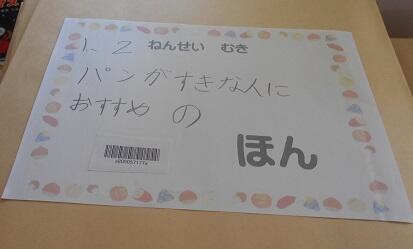 1、2 ねんせい むき
パンがすきな人に
おすすめ の
ほん